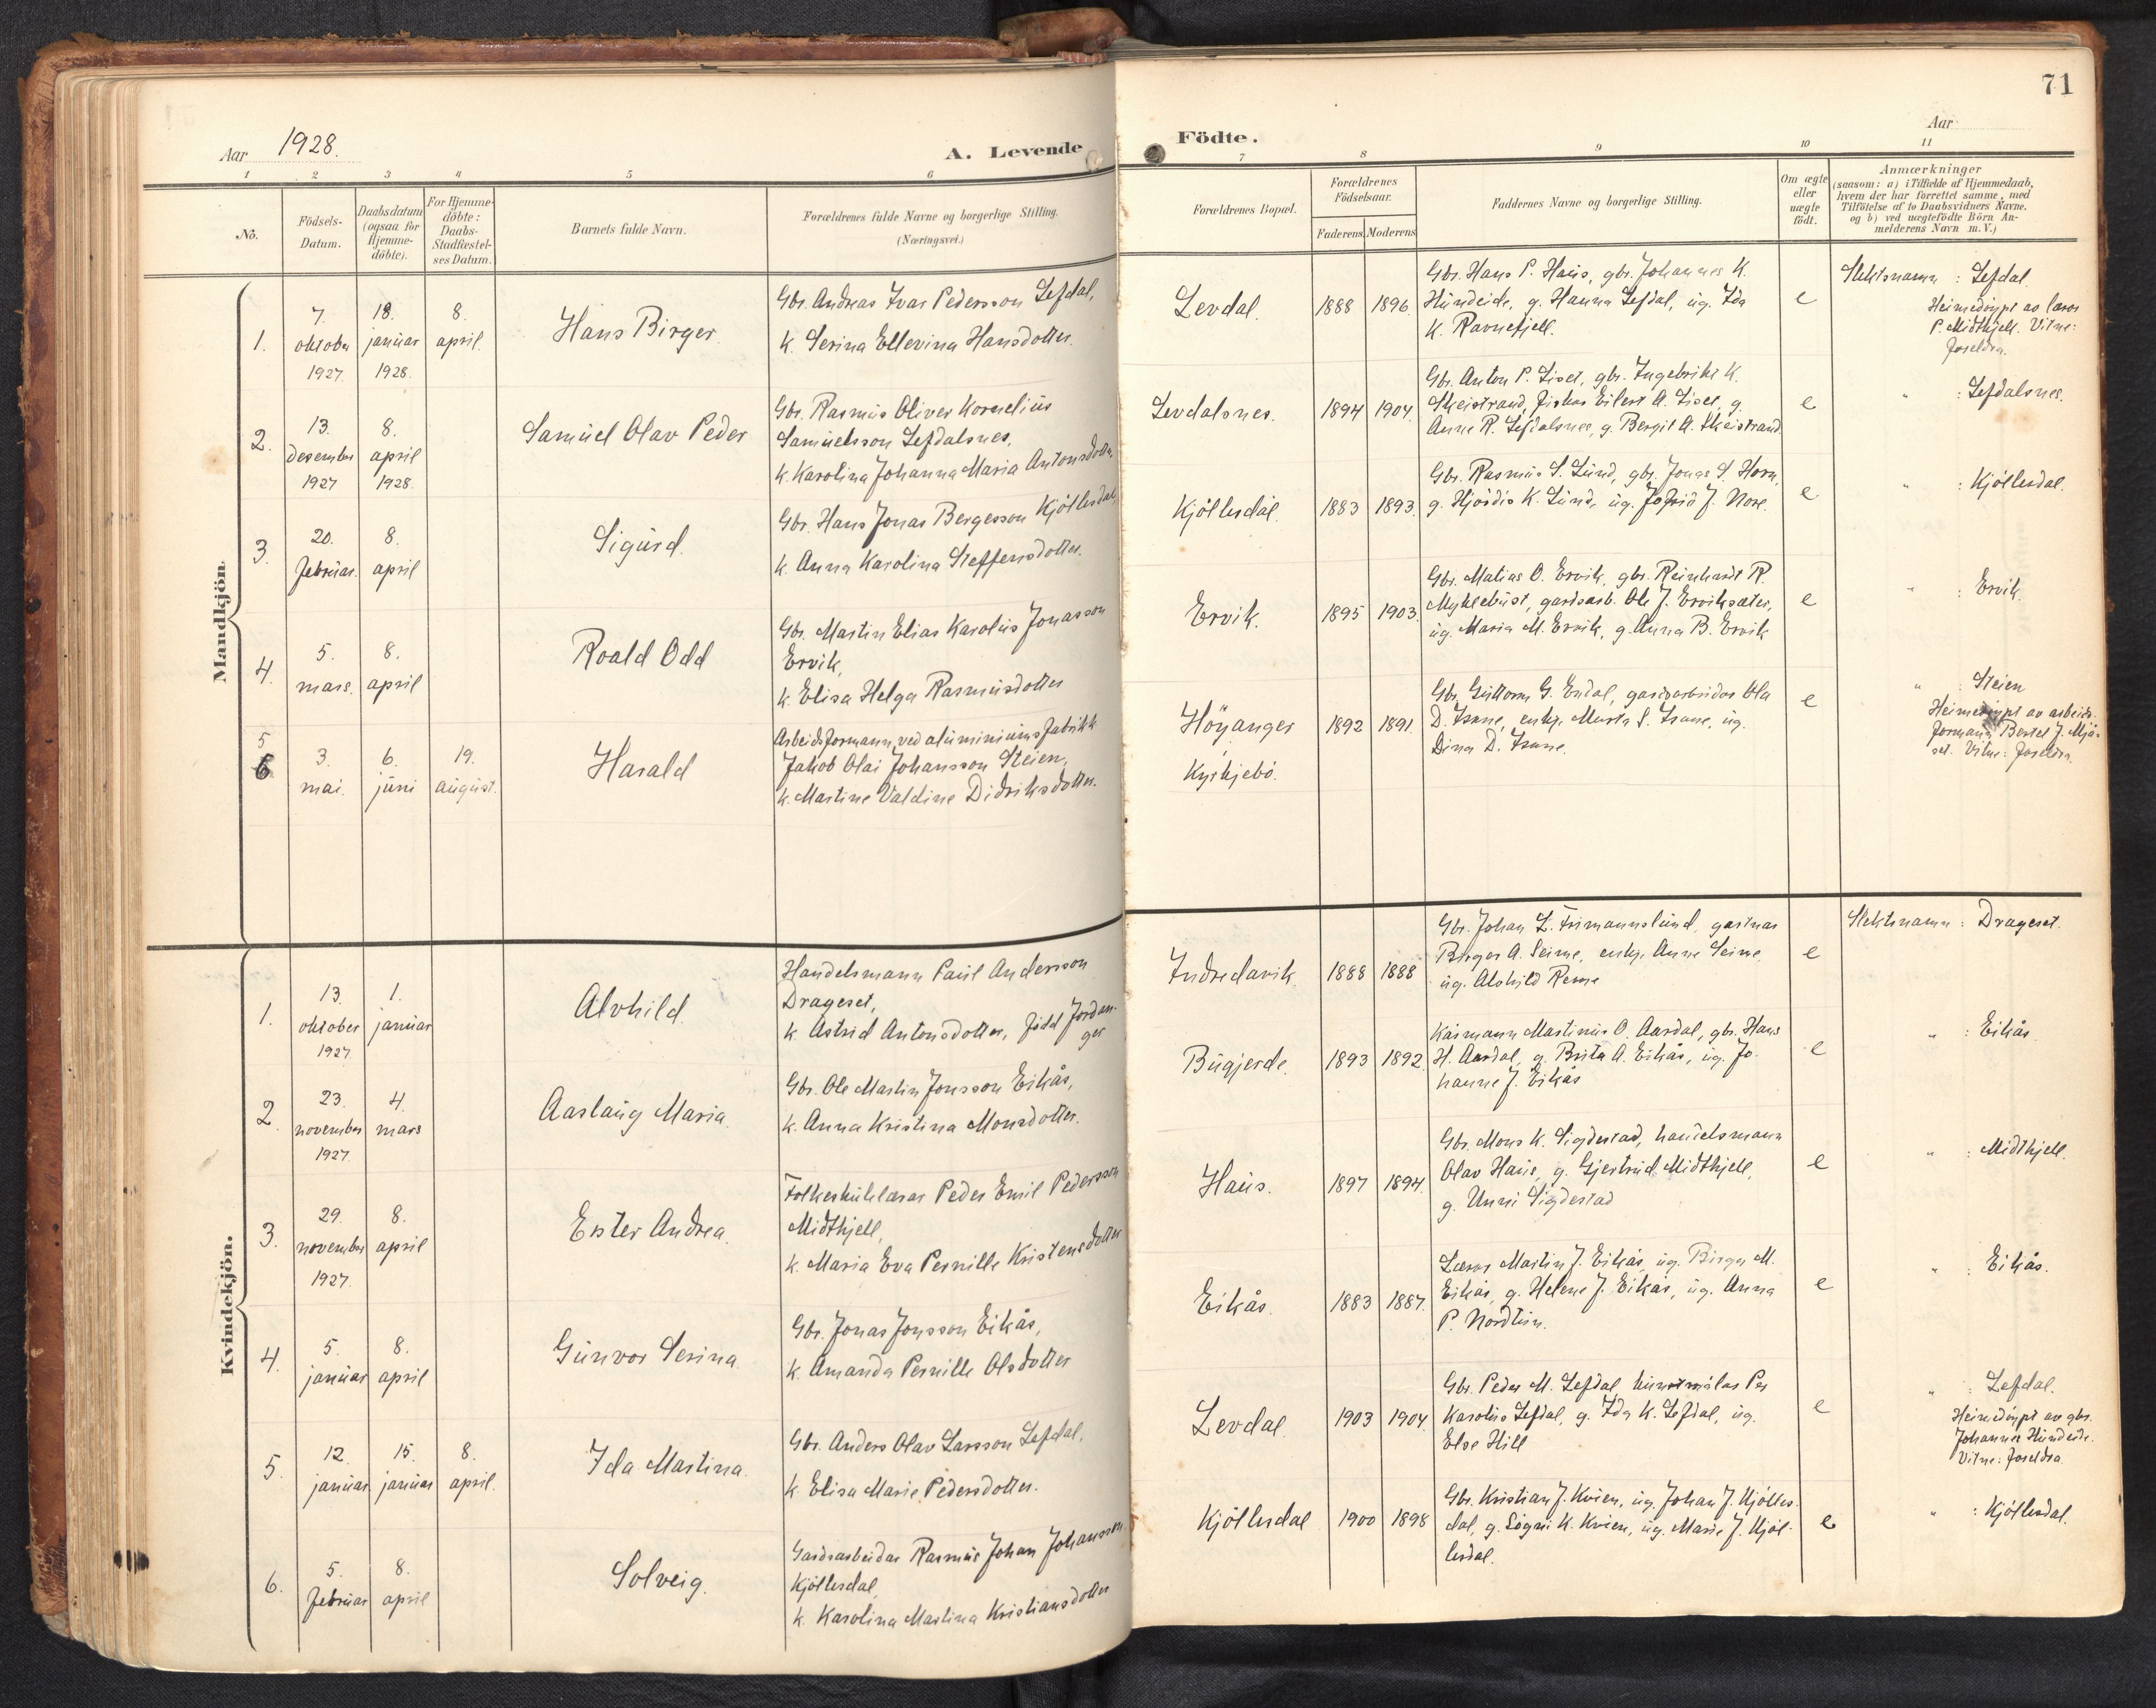 71
Aar 1928.
A. Levende
Födte.
Aar
1 2 3 4 5 6 7 8 9 10 11
No.
Födsels-
Datum.
Daabsdatum
(ogsaa for
Hjemme-
döbte).
For Hjemme-
döbte:
Daabs-
Stadfæstel-
ses Datum.
Barnets fulde Navn.
Forældrenes fulde Navne og borgerlige Stilling.
(Næringsvei.)
Forældrenes Bopæl.
Forældrenes
Födselsaar.
Faderens Moderens
Faddernes Navne og borgerlige Stilling.
Om ægte
eller
uægte
födt.
Anmærkninger
(saasom: a) i Tilfælde af Hjemmedaab,
hvem der har forrettet samme, med
Tilföielse af to Daabsvidners Navne.
og b) ved uægtefödte Börn An-
melderens Navn m. V.)
Mandkjön.
1.
7.
oktober
1927.
18.
januar
1928.
8.
april.
Hans Birger.
Gbr. Andreas Ivar Pedersson Lefdal,
k. Serina Ellevina Hansdotter.
Levdal.
1888 1896.
Gbr. Hans P. Haus, gbr. Johannes K.
Hundeide, g. Hanna Lefdal, ug. Ida
K. Ravnefjell.
e
Slektsnamn : Lefdal.
Heimedöypt av lærar
P. Midthjell. Vitne:
foreldra.
2.
13.
desember
1927
8.
april
1928.
Samuel Olav Peder
Gbr. Rasmus Oliver Kornelius
Samuelsson Lefdalsnes,
k. Karolina Johanna Maria Antonsdotter.
Levdalsnes.
1894 1904.
Gbr. Anton P. Liset, gbr. Ingebrikt K.
Skeistrand, fiskar Eilert A. Liset, g.
Anne R. Lefdalsnes, g. Bergit A. Skeistrand.
e
" : Lefdalsnes.
3.
20.
februar.
8.
april
Sigurd.
Gbr. Hans Jonas Bergesson Kjöllesdal,
k. Anna Karolina Steffensdotter.
Kjöllesdal.
1883 1893.
Gbr. Rasmus S. Lund, gbr. Jonas S. Horn,
g. Hjördis K. Lund, ug. Jofrid J. Nore.
e
" : Kjöllesdal.
4.
5.
mars.
8.
april
Roald Odd
Gbr. Martin Elias Karolius Jonasson
Ervik,
k. Elisa Helga Rasmusdotter
Ervik.
1895 1903.
Gbr. Matias O. Ervik, gbr. Reinhardt R.
Myklebust, gardsarb. Ole J. Erviksæter,
ug. Maria M. Ervik, g. Anna B. Ervik
e
" : Ervik.
5
6
3.
mai.
6.
juni
19.
august.
Harald
Arbeidsformann ved aluminiumsfabrikk
Jakob Olai Johansson Steien,
k. Martine Valdine Didriksdotter.
Höyanger
Kyrkjebö.
1892 1891.
Gbr. Guttorm G. Endal, gardsarbeidar Ola
D. Isane, enkje Marta S. Isane, ug.
Dina D. Isane.
e
" : Steien
Heimedöypt av arbeids-
formann Bertel J. Mjå-
set. Vitne: foreldra.
Kvindekjön.
1.
13.
oktober
1927.
1.
januar
Alvhild.
Handelsmann Paul Andersson
Drageset,
k. Astrid Antonsdotter, född Jordan-
ger
Indredavik
1888 1888
Gbr. Johan L. Frimannslund, gartnar
Birger A. Seime, enkje Anne Seime,
ug. Alshild Reme
e
Slektsnamn : Drageset.
2.
23.
november
1927.
4.
mars
Aaslaug Maria.
Gbr. Ole Martin Jonsson Eikås,
k. Anna Kristina Monsdotter.
Bugjerde.
1893 1892.
Kårmann Martinus O. Aardal, gbr. Hans
H. Aardal, g. Brita A. Eikås, ug. Jo-
hanne J. Eikås
e
" : Eikås
3.
29.
november
1927.
8.
april
Ester Andrea.
Folkeskulelærar Peder Emil Pedersson
Midthjell,
k. Maria Eva Pernille Kristensdotter
Haus.
1897 1894.
Gbr. Mons K. Sigdestad, handelsmann
Olav Haus, g. Gjertrud Midthjell,
g. Unni Sigdestad
e
" : Midthjell.
4.
5.
januar
8.
april
Gunvor Serina.
Gbr. Jonas Jonsson Eikås,
k. Amanda Pernille Olsdotter
Eikås.
1883 1887.
Lærar Martin J. Eikås, ug. Birger M.
Eikås, g. Helene J. Eikås, ug. Anna
P. Nordtun.
e
" : Eikås.
5.
12.
januar
15.
januar
8.
april.
Ida Martina.
Gbr. Anders Olav Larsson Lefdal,
k. Elisa Marie Pedersdotter.
Levdal.
1903 1904.
Gbr. Peder M. Lefdal, kunstmålar Per
Karolius Lefdal, g. Ida K. Lefdal, ug.
Else Hill
e
" : Lefdal.
Heimedöypt av gbr.
Johannes Hundeide.
Vitne: foreldra.
6.
5.
februar
8.
april
Solveig.
Gardsarbeidar Rasmus Johan Johansson
Kjöllesdal,
k. Karolina Martina Kristiansdotter
Kjöllesdal
1900 1898
Gbr. Kristian J. Kvien, ug. Johan J. Kjölles-
dal, g. Sogni K. Kvien, ug. Marie J. Kjöl-
lesdal.
e
" : Kjöllesdal.